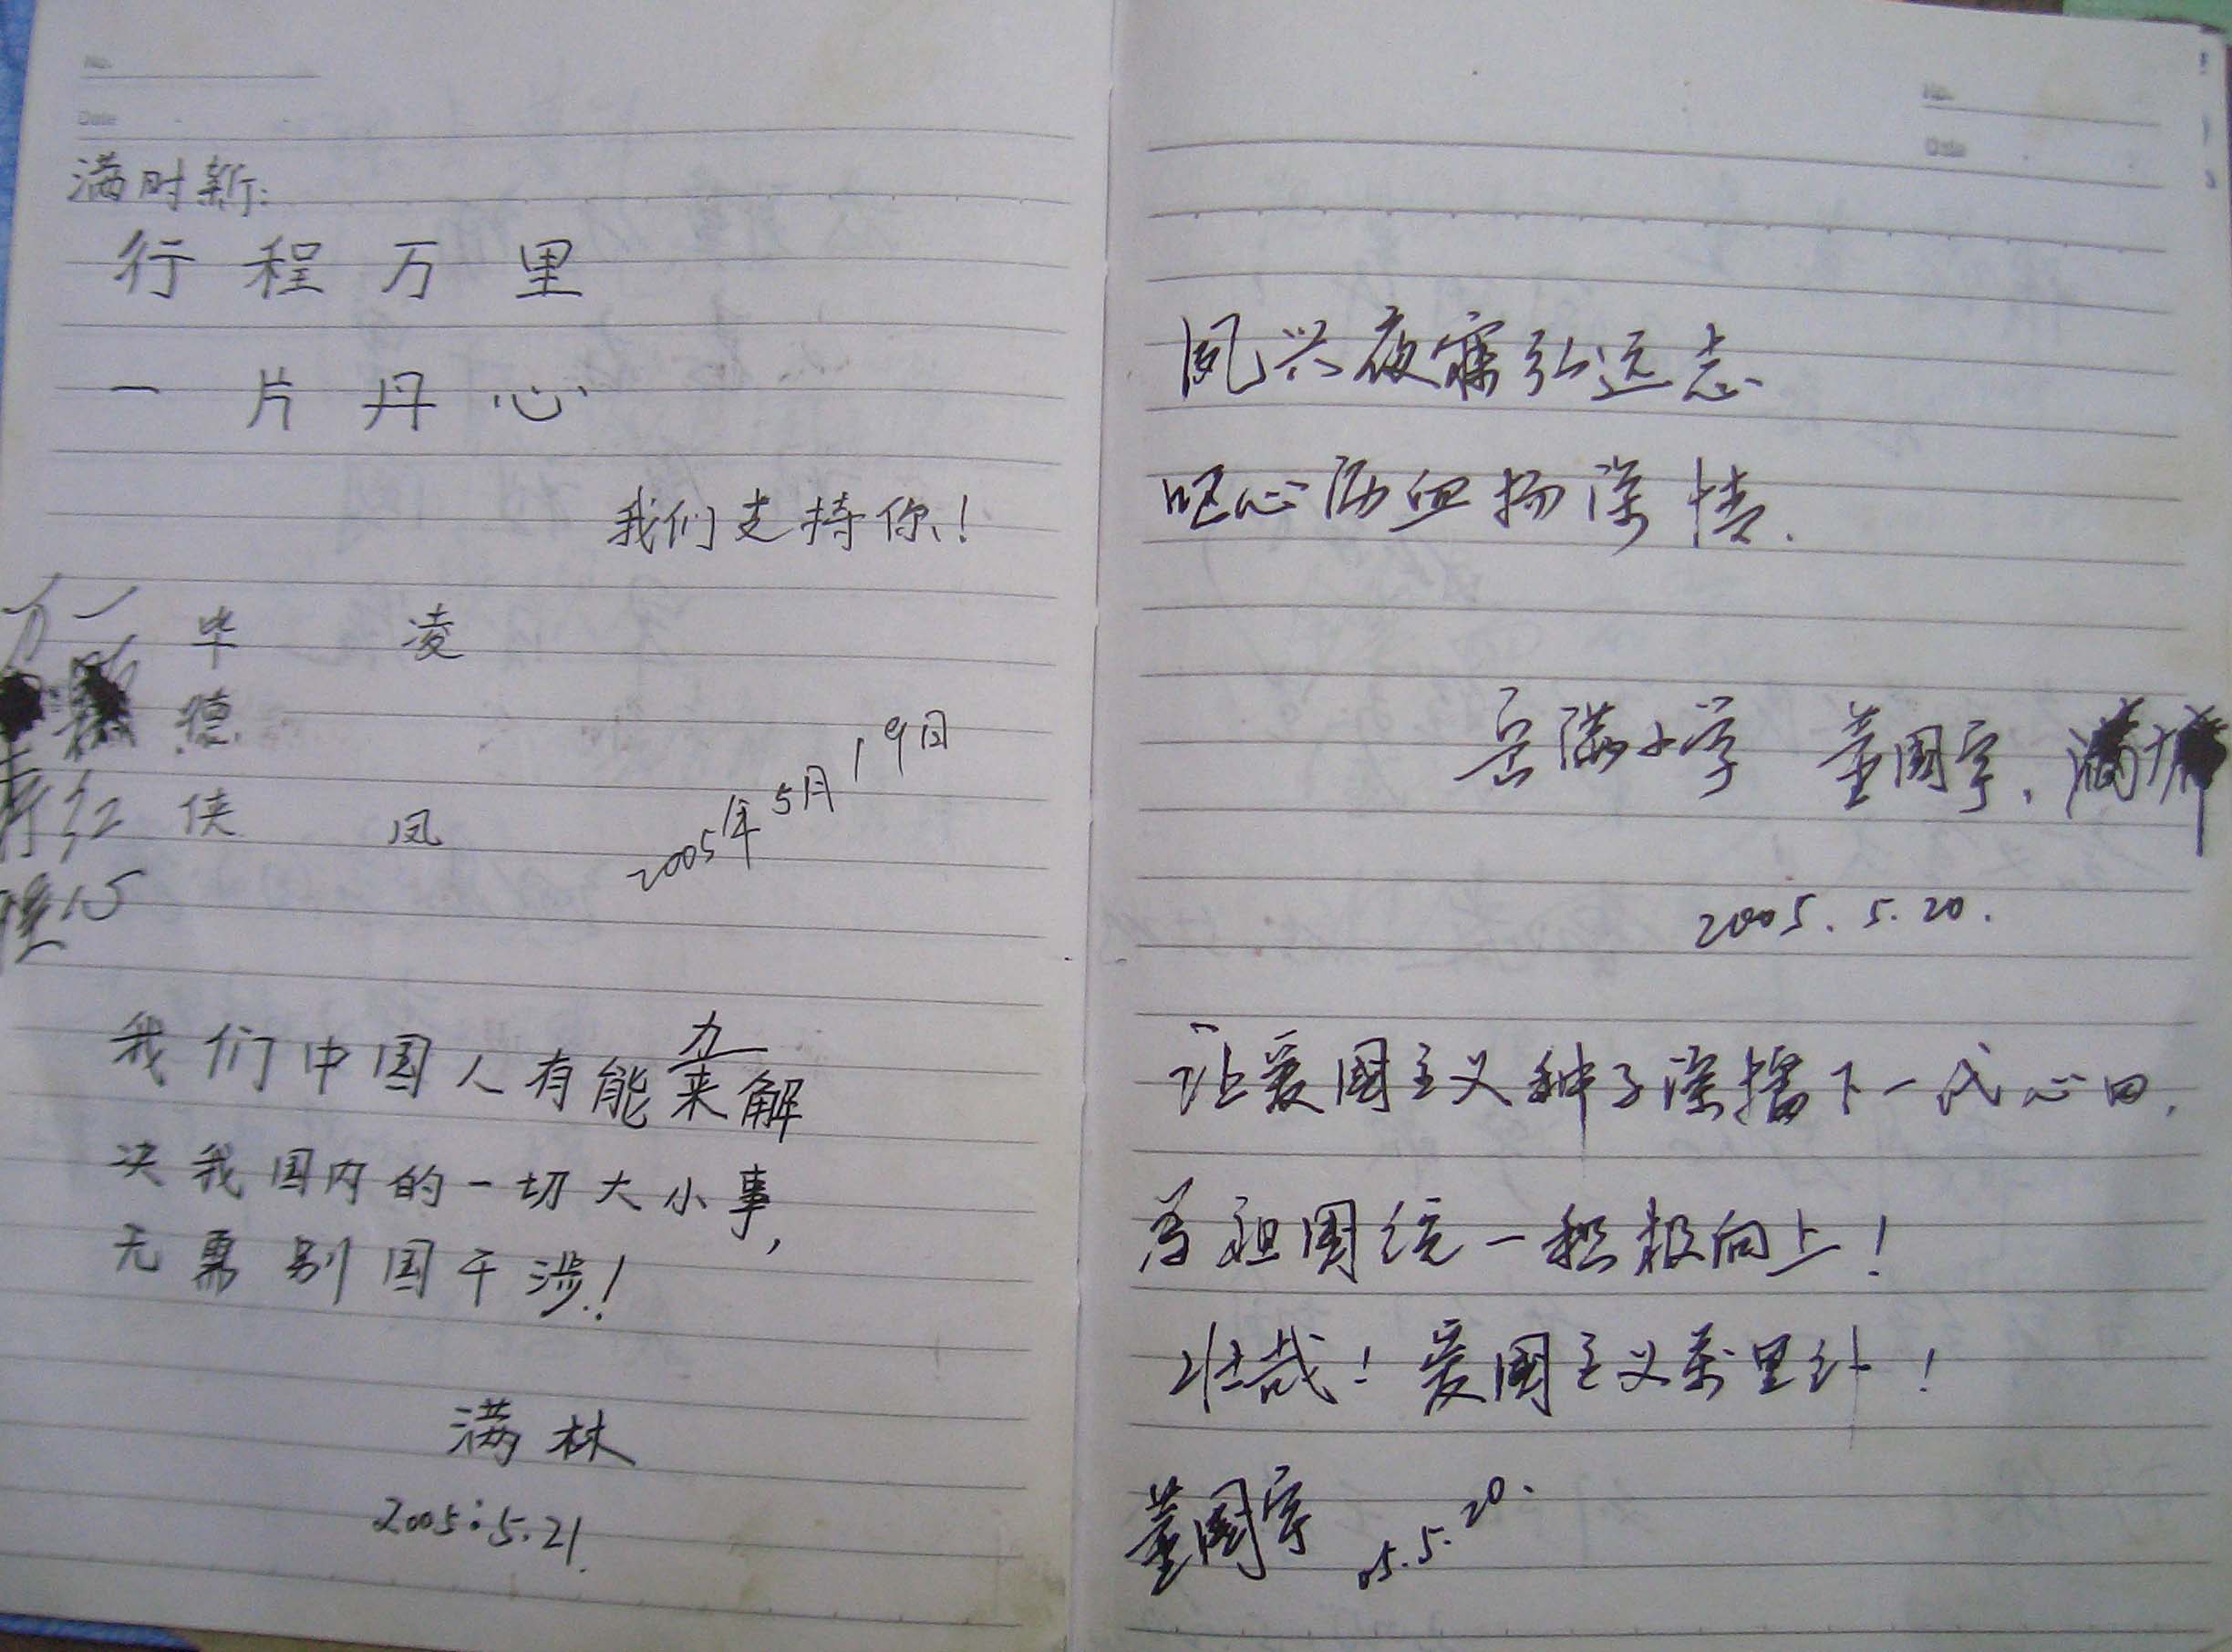 No.
Date
满时新:
行程万里
一片丹心
我们支持你!
毕 凌
德
红侠 凤
2005年5月19日
我们中国人有能力来解
决我国内的一切大小事,
无需别国干涉!
满林
2005.5.21.
No.
Date
夙兴夜寐弘远志
呕心沥血扬深情.
岳满小学 董国宇、满
2005.5.20.
让爱国主义种子深播下一代心田,
为祖国统一积极向上!
壮哉!爱国主义万里行!
董国宇 05.5.20.